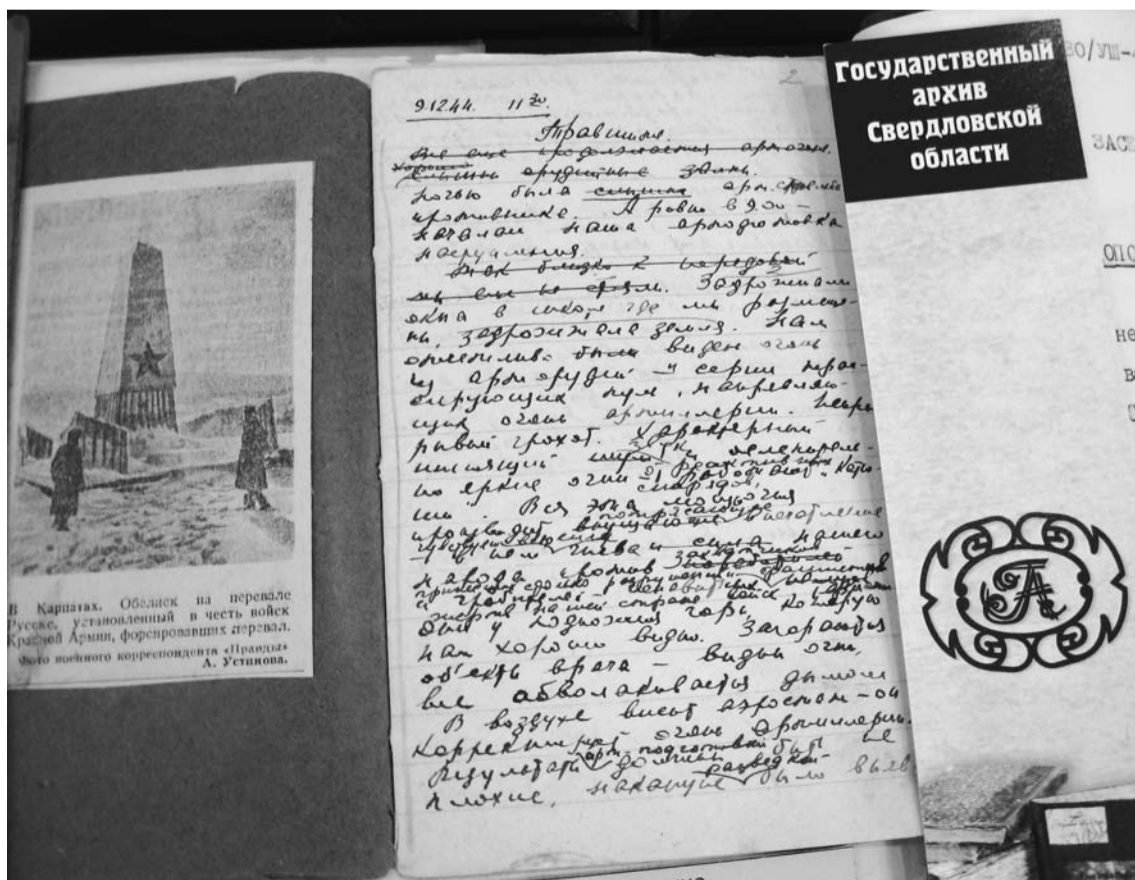 В Карпатах. Обелиск на перевале
Русске, установленный в честь войск
Красной Армии, форсировавших перевал.
Фото военного корреспондента «Правды»
А. Устинова.
2
9.12.44. 11 30.
Все еще продолжается артогонь.
хорошо
слышны орудийные залпы.
Ночью была слышна арт. стрельба
противника. А ровно в 9.00 –
начался наша артподготовка
наступления.
Так близко к передовой
мы еще не были. Задрожали
окна в школе, где мы размеще-
ны, задрожала земля. Нам
отчетливо были виден огонь
из арторудий – серии трас-
сирующих пуль, направляю-
щих огонь артиллерии. Непре
рывный грохот. Характерный
яркие огни
снарядов,
Вся эта
производит впечатление
гнева и сила нашего
народа против
нашей стране
у подножия горы, которую
нам хорошо видно. Загораются
об'екты врага – видны огни,
все обволакивается дымом
В воздухе висит аэростат – он
корректирует огонь артиллерии.
Результаты арт. подготовки должны быть не
плохие, накануне разведкой было выяв
Государственный
архив
Свердловской
области
ВО/УШ-
ЗАСЕ
ОПО
не
в
А